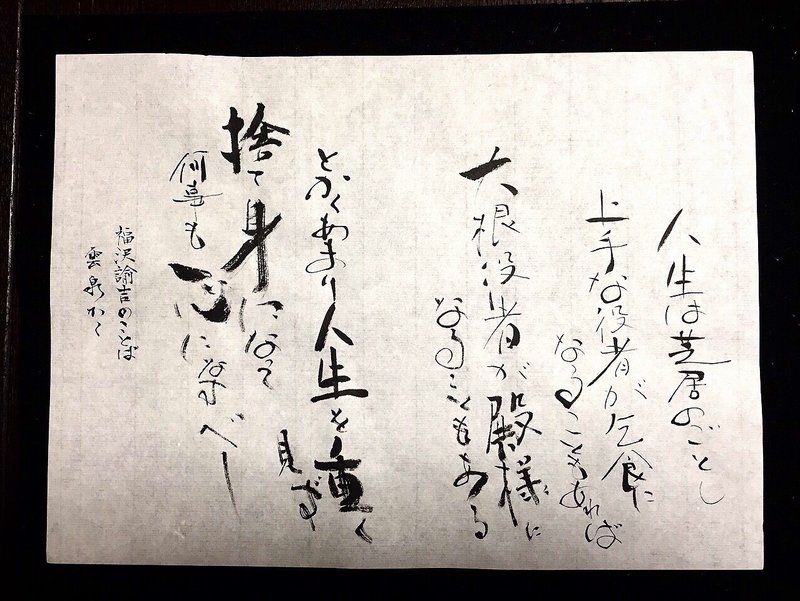 人生は芝居のごとし
上手な役者が乞食に
なることもあれば
大根役者が殿様に
なることもある
とかくあまり人生を重く
見ず
捨て身になって
何事も一心になすべし
福沢諭吉のことば
雲泉かく